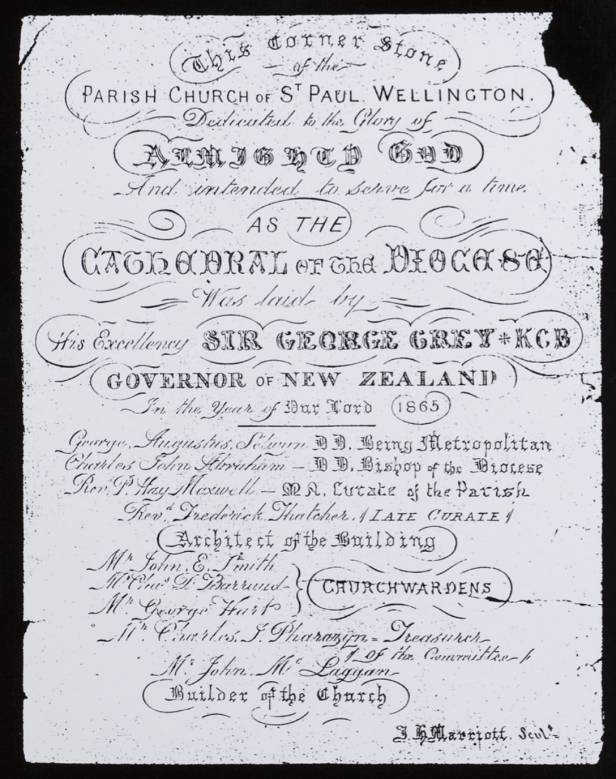 This Corner Stone
of the
PARISH CHURCH OF ST PAUL. WELLINGTON.
Dedicated to the Glory of
ALMIGHTY GOD
And intended to serve for a time
AS THE
CATHEDRAL OF THE DIOCESE
Was laid by
His Excellency SIR GEORGE GREY * KCB
GOVERNOR OF NEW ZEALAND
In the Year of Our Lord 1865
George, Augustus, Selwyn D D. Being Metropolitan
Charles John Abraham – D D. Bishop of the Diocese
Rev. P. Hay Maxwell – M A. Curate of the Parish
Revd. Frederick Thatcher. (LATE CURATE)
Architect of the Building
Mr John, E. Smith
Mr Chas D Barraud
Mr George Hart
CHURCHWARDENS
Mr Charles, J. Pharazyn = Treasurer
of the Committee
Mr John. Mc Laggan
Builder of the Church
J. H Marriott. Sculp